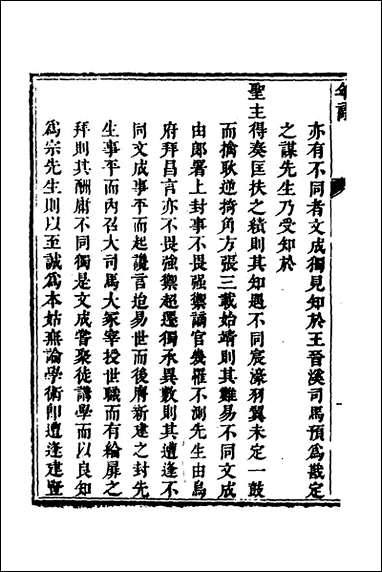 年譜
亦有不同者文成獨見知於王晉溪司馬預為戡定
之謀先生乃受知於
聖主得奏匡扶之績則其知遇不同宸濠羽翼未定一鼓
而擒耿逆掎角方張三載始靖則其難易不同文成
由郎署上封事不畏强禦謫官幾罹不測先生由鳥
府拜昌言亦不畏強禦超遷獨承異數則其遭逢不
同文成事平而起讒言迨易世而後膺新建之封先
生事平而內召大司馬大冢宰授世職而有綸扉之
拜則其酬庸不同獨是文成嘗聚徒講學而以良知
為宗先生則以至誠為本姑無論學術卽遭逢建豎